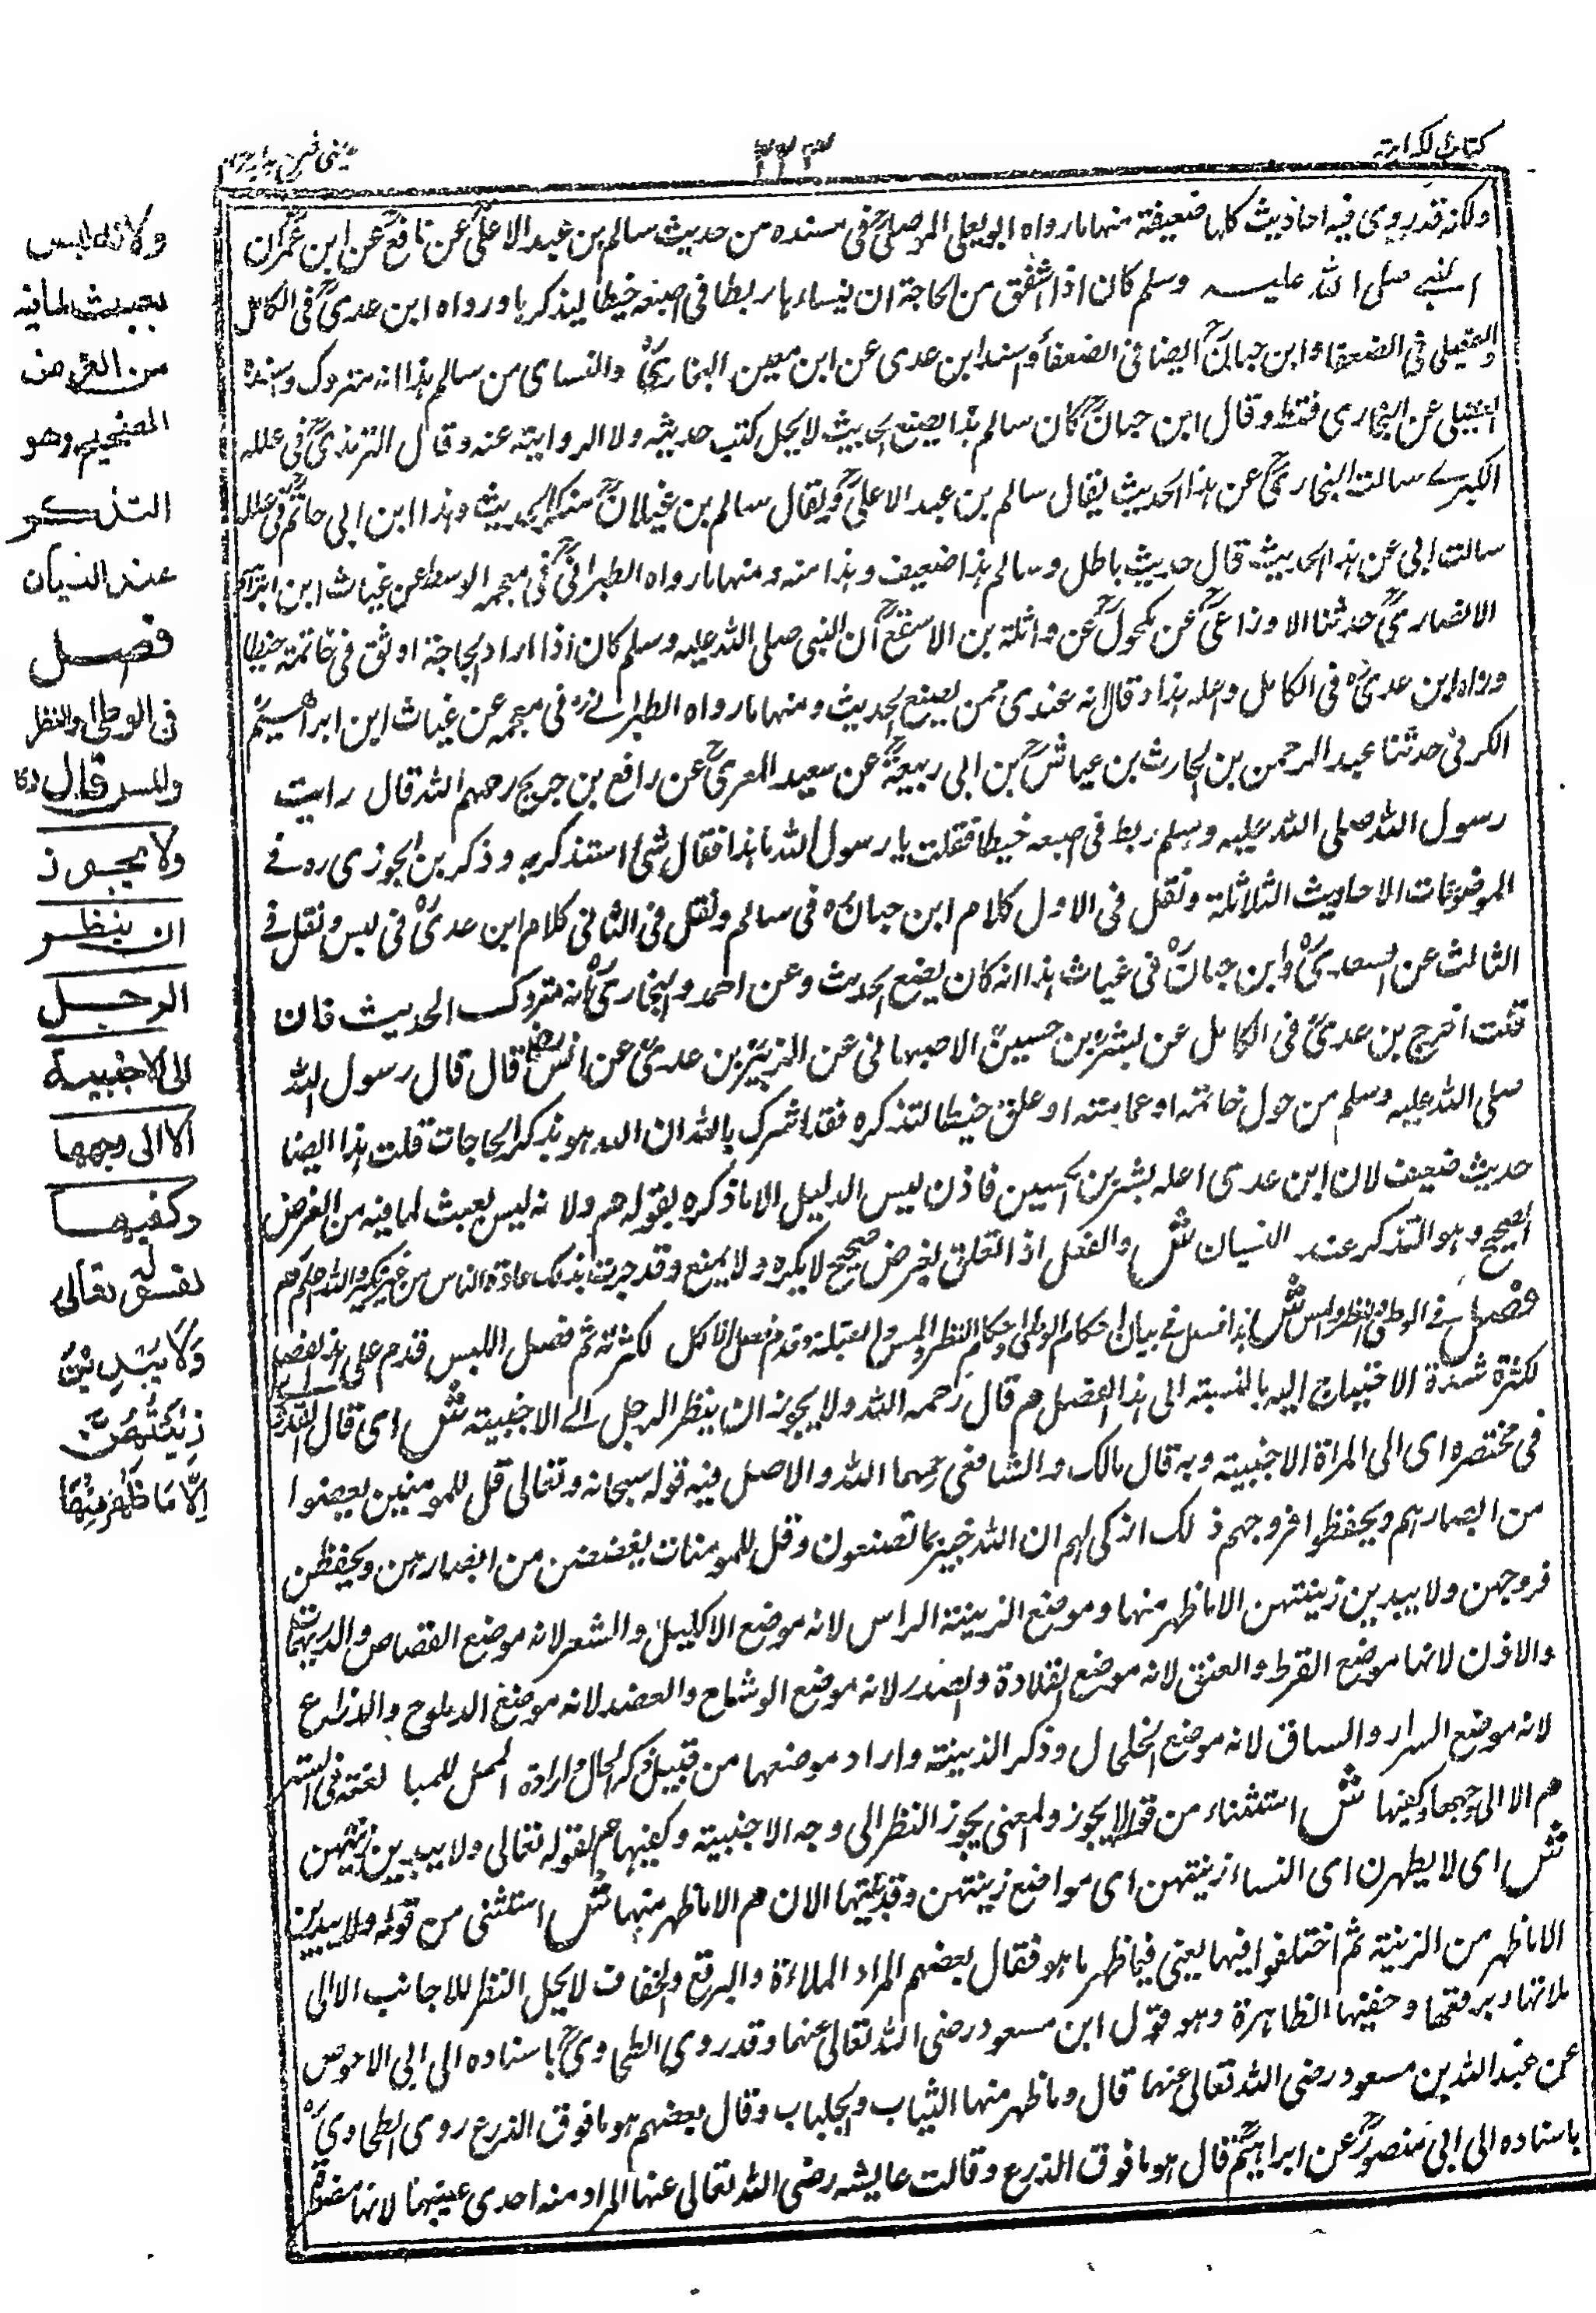 كتاب الكراهية
٢٢٣
عینی شرح ہدایہ
ولكنه قد روى فيه احاديث كلها ضعيفة منها ما رواه ابو يعلى الموصلىؒ فى مسنده من حديث سالم بن عبد الاعلىؒ عن نافعؒ عن ابن عمرؓ ان
النبے صلى الله عليه وسلم كان اذا اشفق من الحاجة ان ينساها ربطا فى اصبعه خيطا ليذكرها ورواه ابن عدىؒ فى الكامل
والعقيلى فى الضعفا وابن حبانؒ ايضا فى الضعفاء واسند ابن عدى عن ابن معين البخارىؒ والنساى من سالم هذا انه متروك واسنده
العقيلى عن البخارى فقط وقال ابن حبانؒ كان سالم هذا يضع الحديث لا يحل كتب حديثه ولا الرواية عنه وقال الترمذىؒ فى علله
الكبرے سالت البخارىؒ عن هذا الحديث يقال سالم بن عبد الاعلىؒ ويقال سالم بن غيلانؒ منكر الحديث وهذا ابن ابى حاتمؒ فى علله
سالت ابى عن هذا الحديث قال حديث باطل وسالم هذا ضعيف وهذا منه ومنها ما رواه الطبرانىؒ فى معجمه الاوسط عن غياث ابن ابراہيم
الانصارىؒ حدثنا الاوزاعىؒ عن مكحولؒ عن واثلة بن الاسقعؓ ان النبى صلى الله عليه وسلم كان اذا اراد الحاجة اوثق فى خاتمته خيطا
ورواه ابن عدىؒ فى الكامل وعله هذا وقال انه عندى ممن يضع الحديث ومنها ما رواه الطبرانےؒ فى معجمه عن غياث ابن ابراهيمؒ
الكرفى حدثنا عبد الرحمن بن الحارث بن عياشؒ بن ابى ربيعةؒ عن سعيد المعرىؒ عن رافع بن جريج رحمهم الله قال رايت
رسول الله صلى الله عليه وسلم ربط فى اصبعه خيطا فقلت يا رسول الله ما هذا فقال شئ استذكر به وذكر بن الجوزى رہ فے
الموضوعات الاحاديث الثلاثة ونقل فى الاول كلام ابن حبانؒ فى سالم ونقل فى الثانى كلام ابن عدىؒ فى بس ونقل فے
الثالث عن السعدىؒ وابن حبانؒ فى غياث هذا انه كان يضع الحديث وعن احمد والبخارىؒ انه متروك الحديث فان
قلت اخرج بن عدىؒ فى الكامل عن بشرؒ بن حسينؒ الاصبهانى عن الزبيرؒ بن عدىؒ عن انسؓ قال قال رسول الله
صلى الله عليه وسلم من حول خاتمه او عمامته او علق خيطا لتذكره فقد اشرك بالله ان الله هو يذكر الحاجات قلت هذا ايضا
حديث ضعيف لان ابن عدى اعله ببشر بن الحسين فاذن ليس الدليل الا ما ذكره بقوله هم ولا نه ليس بعبث لما فيه من الغرض
الصحيح وهو التذكر عند النسيان ش والفعل اذا تعلق لغرض صحيح لا يكره ولا يمنع وقد جرت بذلك عادة الناس من غير نكير والله اعلم هم
فصل فے الوطى والنظر والمس ش هذا فصل فے بيان احكام الوطى واحكام النظر والمس والقبلة وقدم فصل الاكل لكثرته ثم فصل اللبس قدم على هذا الفصل
لكثرة شدة الاحتياج اليه بالنسبته الى هذا الفصل هم قال رحمه الله ولا يجوز ان ينظر الرجل الے الاجنبية ش اى قال القدورى
فى مختصره اى الى المراة الاجنبية وبه قال مالك والشافعى رحمهما الله والاصل فيه قوله سبحانه وتعالى قل للمومنين يغضوا
من ابصارهم ويحفظوا فروجهم ذلك ازكى لهم ان الله خبير بما تصنعون وقل للمومنات يغضضن من ابصارهن ويحفظن
فروجهن ولا يبدين زينتهن الا ما ظهر منها وموضع الزينة الراس لانه موضع الاكليل والشعر لانه موضع القصاص والدريهمات
والاذن لانها موضع القرط والعنق لانه موضع القلادة والصدر لانه موضع الوشاح والعضد لانه موضع الدملوج والذراع
لانه موضع السوار والساق لانه موضع الخلخال وذكر الزينة واراد موضعها من قبيل ذكر الحال وارادة المحل للمبالغة فى الستر
هم الا الى وجهها وكفيها ش استثناء من قوله لا يجوز والمعنى يجوز النظر الى وجه الاجنبية وكفيها هم لقوله تعالى ولا يبدين زينتهن
ش اى لا يظهرن اى النساء زينتهن اى مواضع زينتهن وقد بيّنتها الان هم الا ما ظهر منها ش استثنى من قوله ولا يبدين
الا ما ظهر من الزينة ثم اختلفوا فيها يعنى فيما ظهر ما هو فقال بعضهم المراد الملاءة والبرقع والخفاف لا يحل النظر للاجانب الا الى
ملاتها وبرقعها وخفيها الظاهرة وهو قول ابن مسعود رضى الله تعالى عنهما وقد روى الطحاوىؒ باسناده الى ابى الاحوص
عن عبد الله بن مسعود رضى الله تعالى عنهما قال وما ظهر منها الثياب والجلباب وقال بعضهم هو ما فوق الذرع روى الطحاوىؒ
باسناده الى ابى منصورؒ عن ابراهيمؒ قال هو ما فوق الذرع وقالت عايشه رضى الله تعالى عنها المراد منه احدى عينيها لانها مضطرة
ولانه ليس
بعبث لما فيه
من الغرض
الصحيح وهو
التذكر
عند النسيان
فصل
فى الوطى والنظر
والمس قال
ولا يجوز
ان ينظر
الرجل
الى الاجنبية
الا الى وجهها
وكفيها
لقوله تعالى
وَلَا يُبْدِينَ
زِيْنَتَهُنَّ
اِلَّا مَا ظَهَرَ مِنْهَا